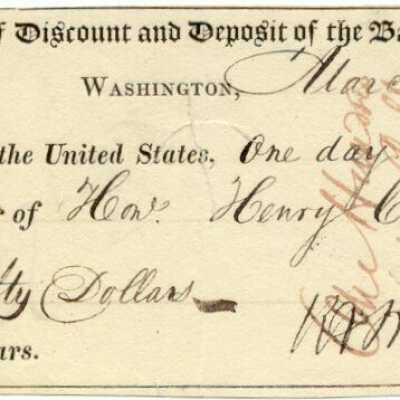 f Discount and Deposit of the Ba
Washington, Marc
the United States, One day
of Hon. Henry C
ty Dollars
ars.